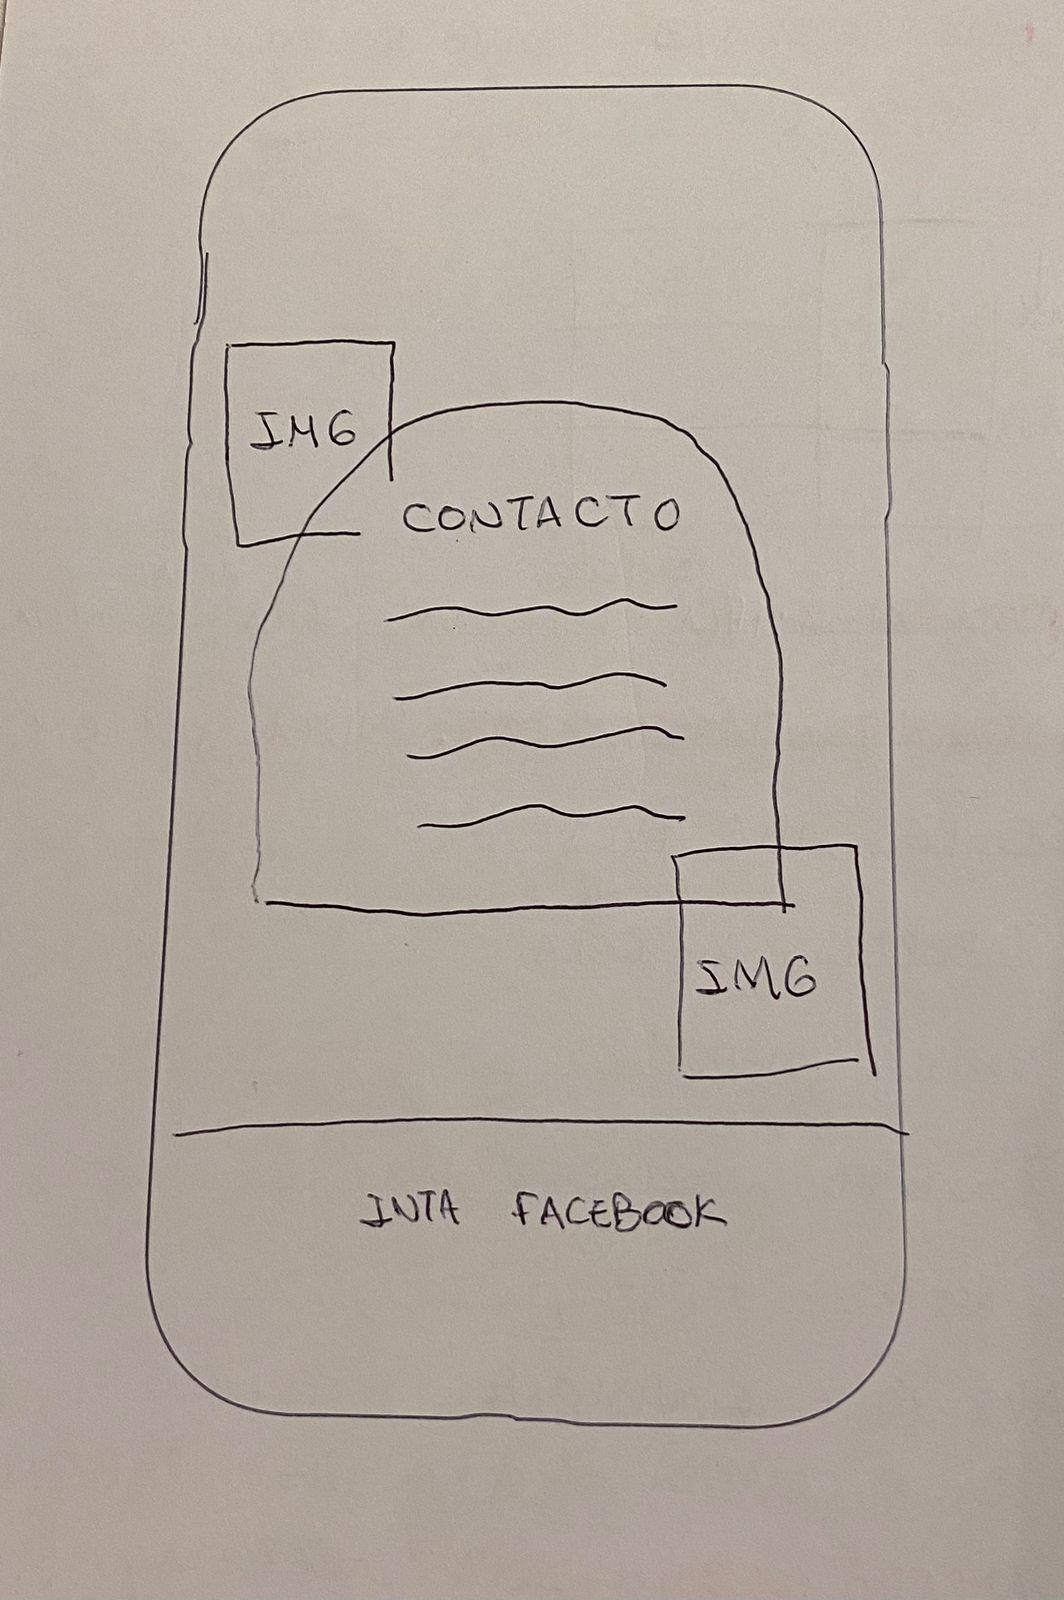 IMG
CONTACTO
IMG
INTA FACEBOOK